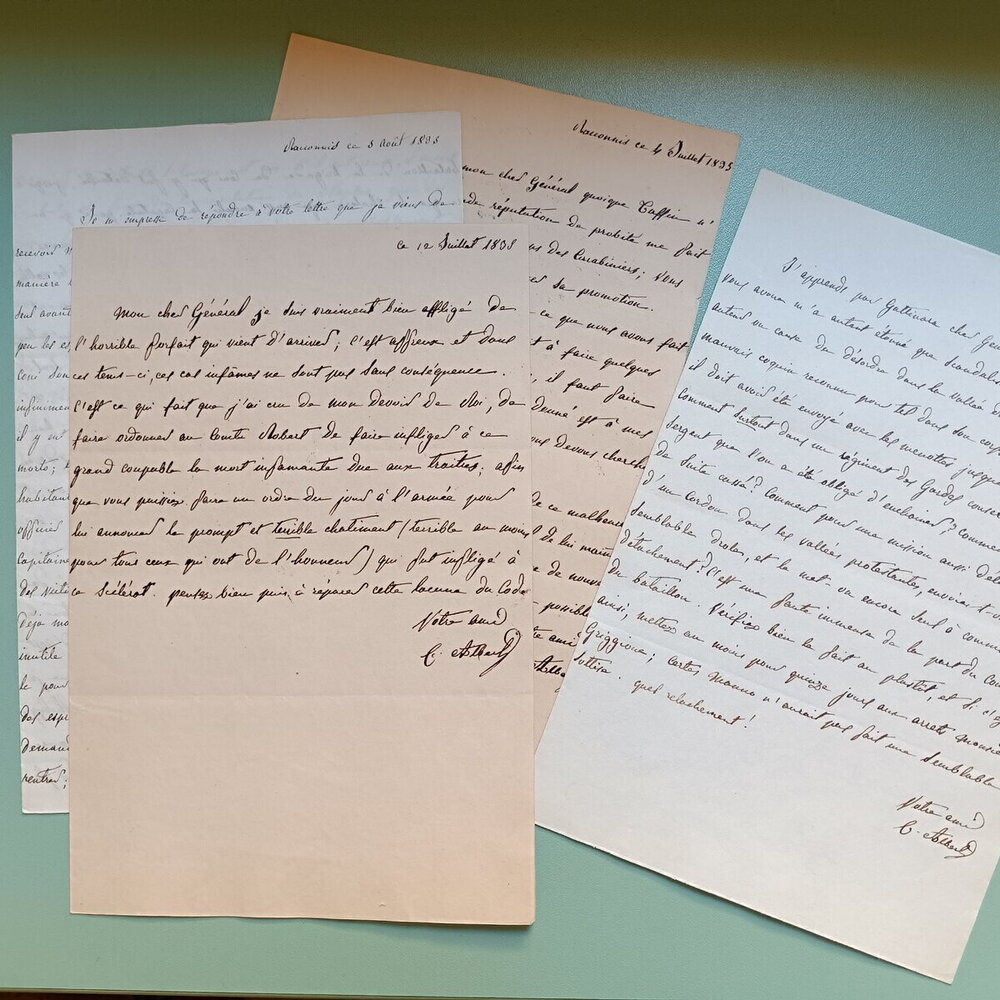 Racconnis ce 3 Août 1835
Je m'empresse de répondre à votre lettre que je viens de
recevoir
manière
peu les
infiniment
il y en
morts;
habitans
officier
capitaine
des
déjà
inutile
le pour
des
demand
rentrer;
Racconnis ce 4 Juillet 1835
mon cher Général quoique Taffin n'
réputation de probité me fait
des Carabiniers; vous
sa promotion.
ce que nous avons fait
à faire quelques
il faut faire
donné est à mes
devons cherch
de ce malheur
de lui
de nouv
possible
ami
ce 12 Juillet 1835
Mon cher Général je suis vraiment bien affligé de
l'horrible forfait qui vient d'arriver; c'est affreux et dans
ces tems-ci, ces cas infâmes ne sont pas sans conséquence.
C'est ce qui fait que j'ai cru de mon devoir de Roi, de
faire ordonner au Comte Robert de faire infliger à ce
grand coupable la mort infamante due aux traîtres; afin
que vous puissiez faire un ordre du jour à l'armée pour
lui annoncer le prompt et terrible châtiment (terrible au moins
pour tous ceux qui ont de l'honneur) qui fut infligé à
ce scélérat. pensez bien puis, à réparer cette lacune du Code
Votre ami
C. Albert
J'apprends par Gattinara cher Gén
vous avoue m'a autant étonné que scandalis
auteur ou cause du désordre dans la vallée
mauvais coquin reconnu pour tel dans son corps
il doit avoir été envoyé avec les menottes jusque
Comment surtout dans un régiment des Gardes conser
sergent que l'on a été obligé d'enchainer? Comme
de suite cassé? Comment pour une mission aussi dél
d'un Cordon dans les vallées protestantes, envoier
semblable drôle, et le met-on encore seul à comm
détachement? C'est une faute immense de la part du Com
du bataillon. Vérifiez bien le fait au plustot, et si c'e
ainsi, mettez au moins pour quinze jours aux arrets monsie
Griggione; certes Manno n'aurait pas fait une semblable
sottise. quel relachement!
Votre ami
C. Albert